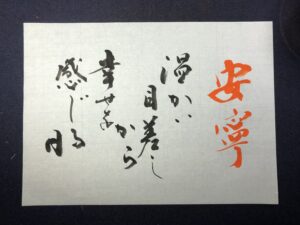 安寧
温かい
目差し
から
幸せを
感じる日